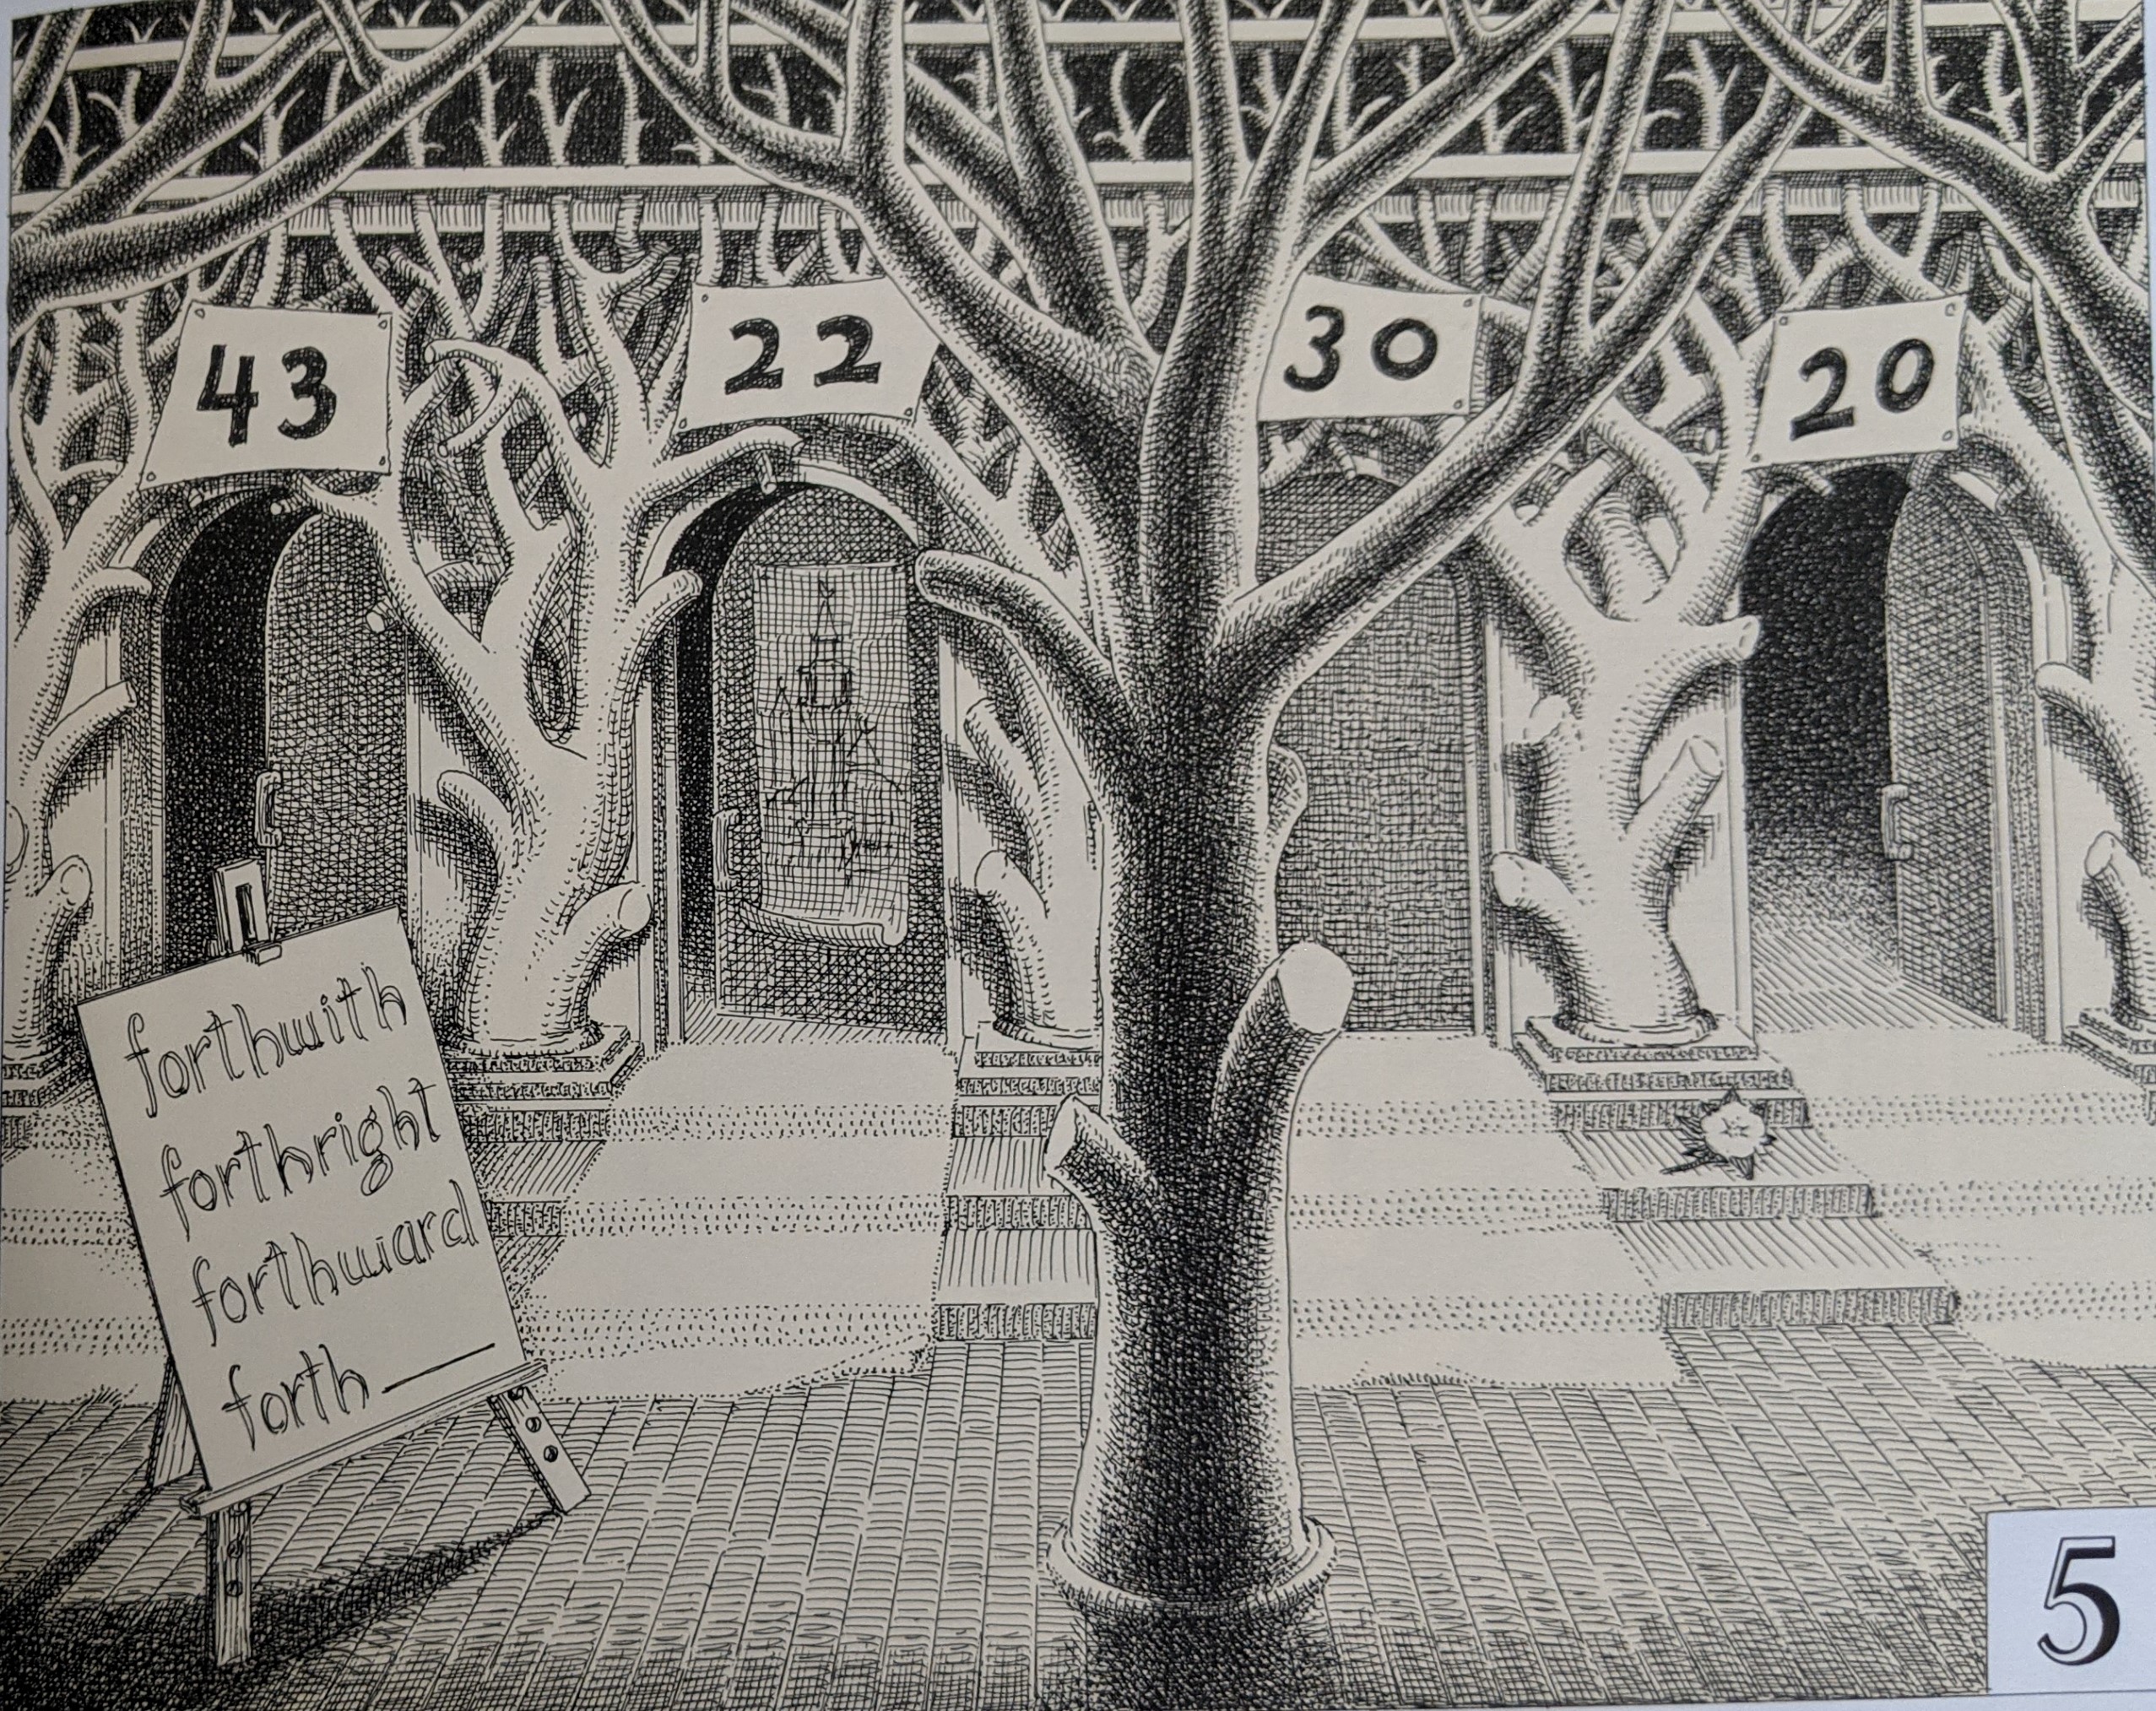 43
22
30
20
forthwith
forthright
forthward
forth ____
5